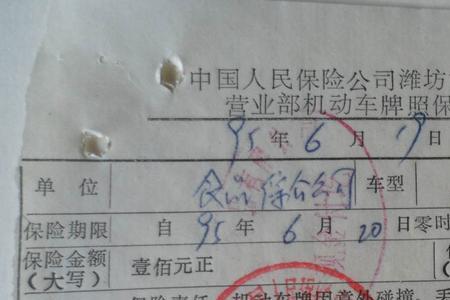 中国人民保险公司潍坊
营业部机动车牌照保
95年6月19日
单位 食品综合公司 车型
保险期限 自95年6月20日零时
保险金额(大写) 壹佰元正
机动车牌因意外碰撞、